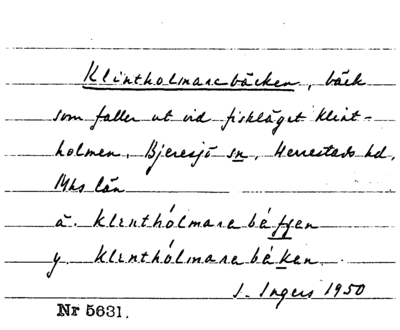 Klintholmarebäcken, bäck
som faller ut vid fiskläget Klint-
holmen, Bjeresjö sn, Herrestads hd,
Mhs län
ä. klinthólmarebé
y. klinthólmarebéken
I. Ingers 1950
Nr 5631.